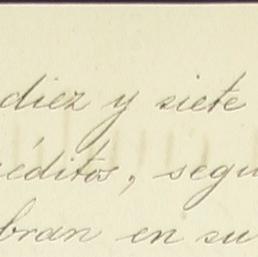 diez y siete
réditos, segu
bran en su